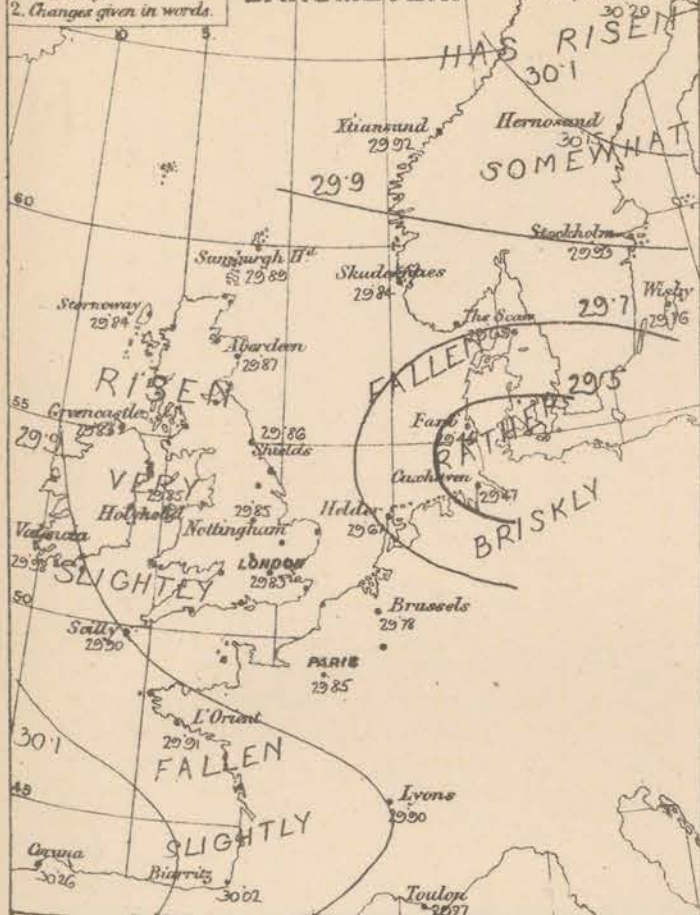 2. Changes given in words.
10
5
30·20
HAS RISEN
30·1
Xtiansund
29·92
Hernosand
30·15
SOMEWHAT
29·9
60
Stockholm
Sumburgh Hd
29·89
Skudesnaes
29·84
29·7
Wisby
29·76
Stornoway
29·84
The Scaw
Aberdeen
29·87
FALLEN
RISEN
29·5
55
Greencastle
29·86
Shields
Fanö
RATHER
29·9
VERY
29·85
Cuxhaven
29·47
Holyhead
29·85
Nottingham
Helder
BRISKLY
Valencia
LONDON
29·83
SLIGHTLY
50
Brussels
29·78
Scilly
29·90
PARIS
29·85
L'Orient
29·91
30·1
FALLEN
45
Lyons
29·90
SLIGHTLY
Coruna
30·26
Biarritz
30·02
Toulon
29·97